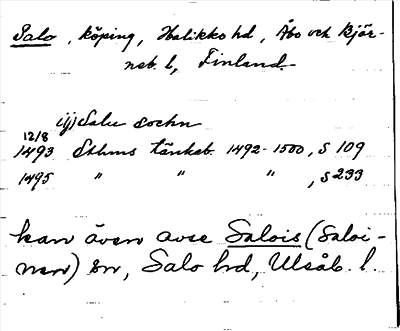 Salo, köping, Halikko hd, Åbo och Björ-
neb. l, Finland.
i(j) Salu sochn
12/8
1493 Sthms tänkeb. 1492-1500, s 109
1495 " " " , s 233
kan även avse Salois (Saloi-
nen) sn, Salo hd, Uleåb. l.